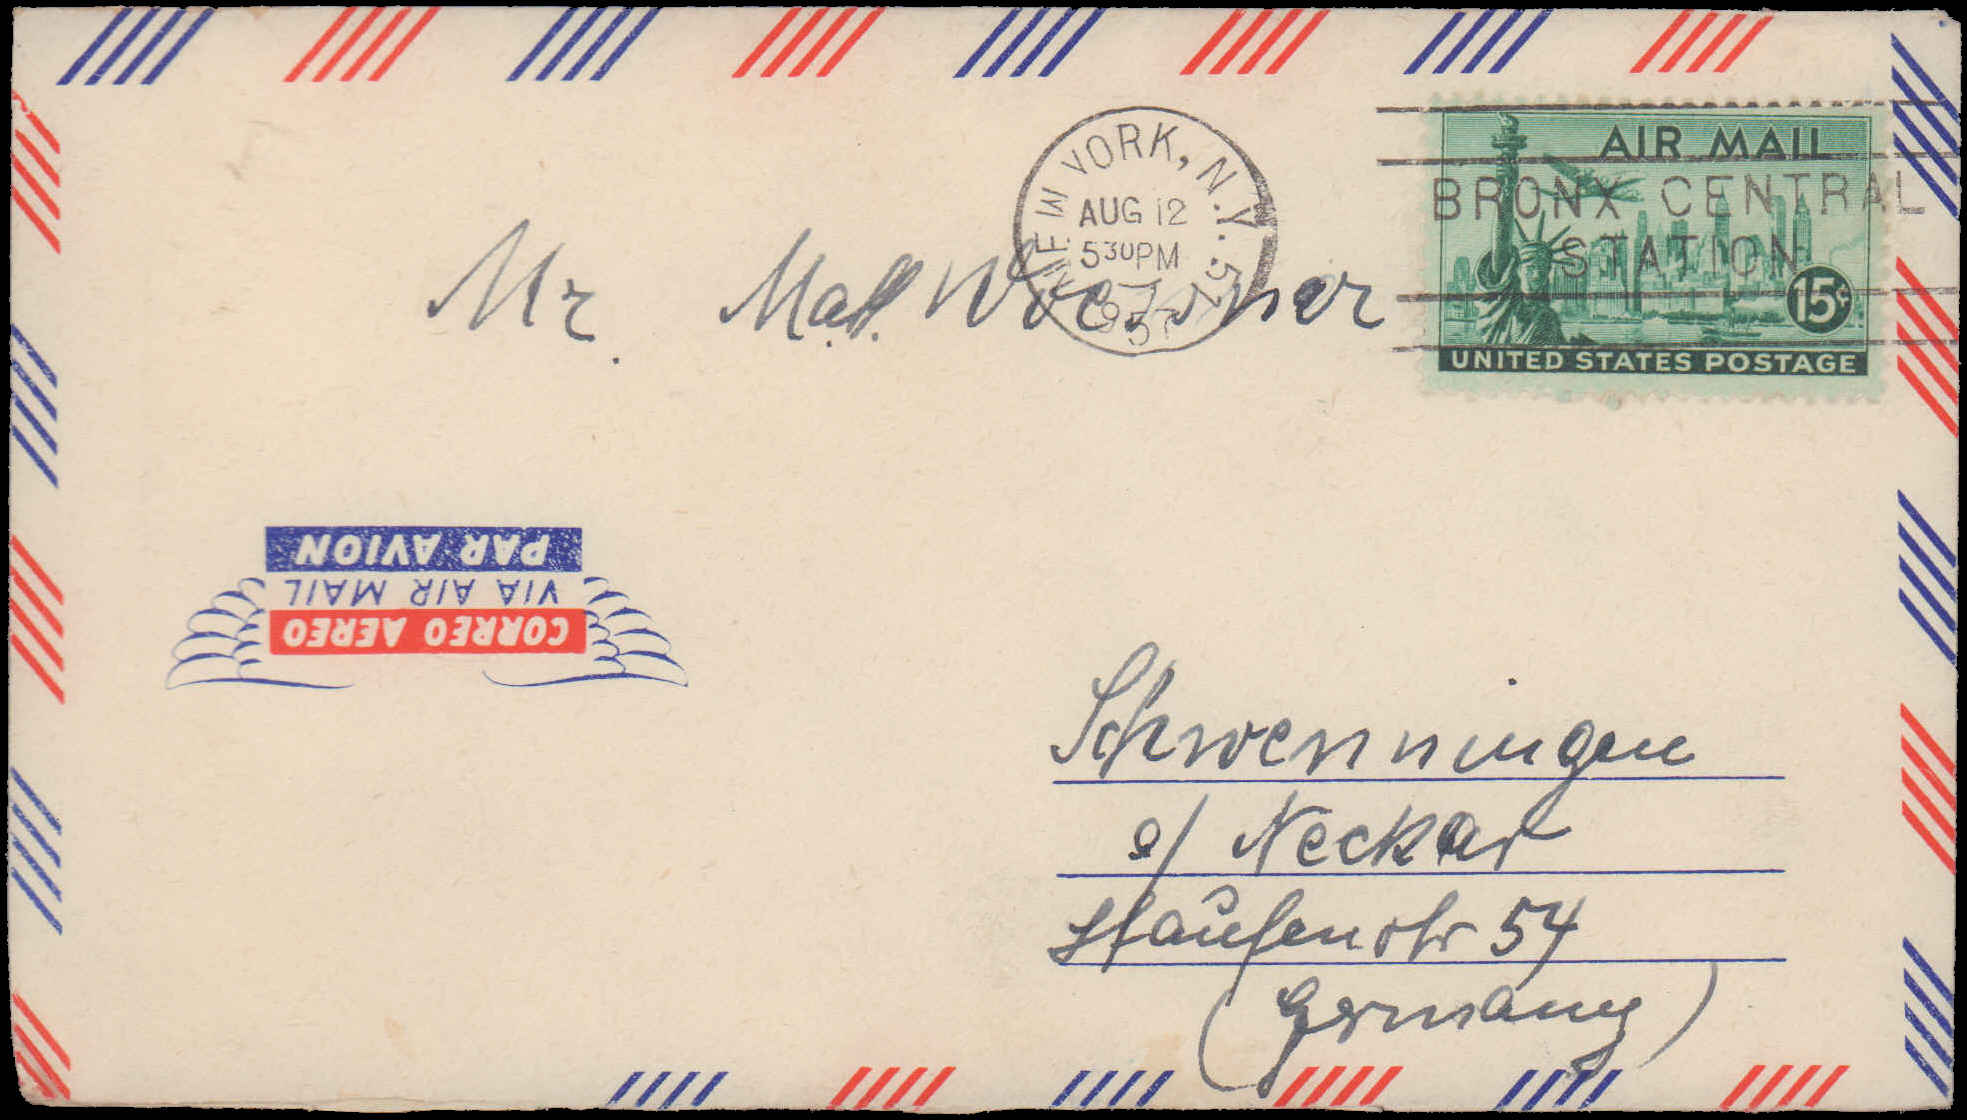 NEW YORK, N.Y. 57
AUG 12
530PM
1957
AIR MAIL
BRONX CENTRAL
STATION
15¢
UNITED STATES POSTAGE
Mr. Math.
PAR AVION
VIA AIR MAIL
CORREO AEREO
Schwenningen
a/ Neckar
Staufenstr 54
(Germany)